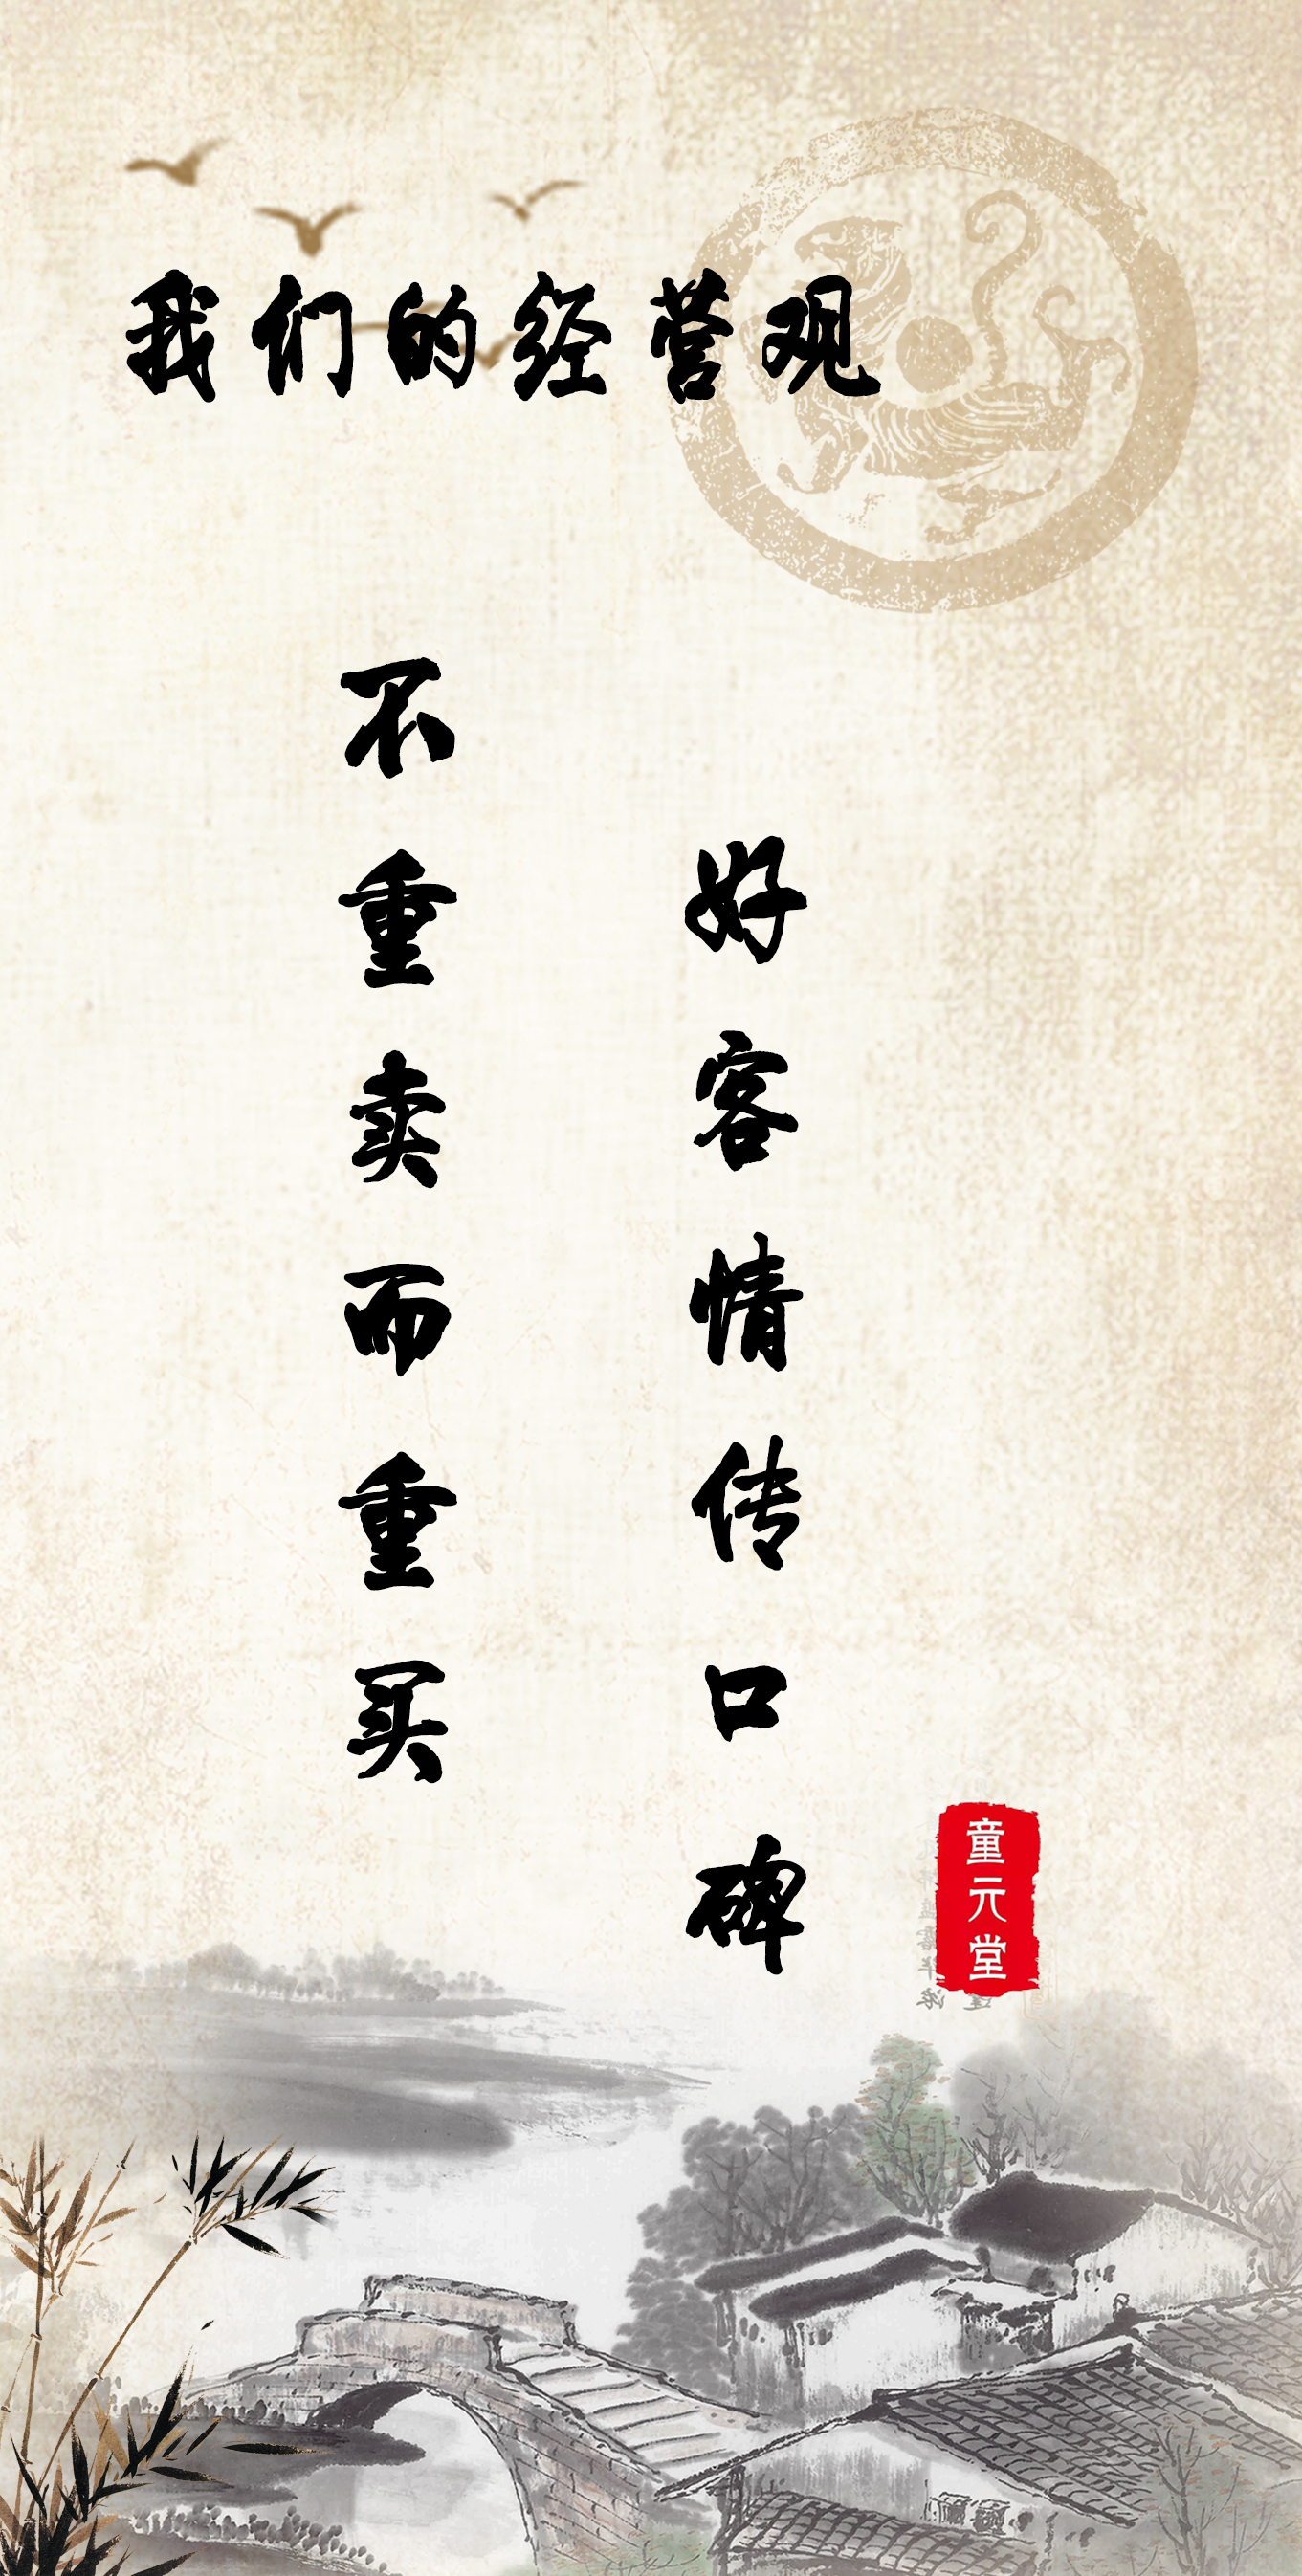 我们的经营观
不重卖而重买
好客情传口碑
童元堂